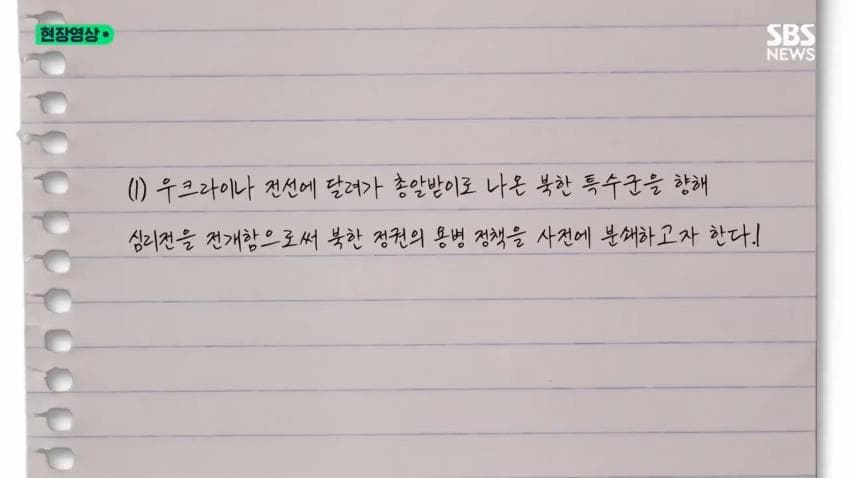 현장영상
SBS
NEWS
(1) 우크라이나 전선에 달려가 총알받이로 나온 북한 특수군을 향해
심리전을 전개함으로써 북한 정권의 용병 정책을 사전에 분쇄하고자 한다.!